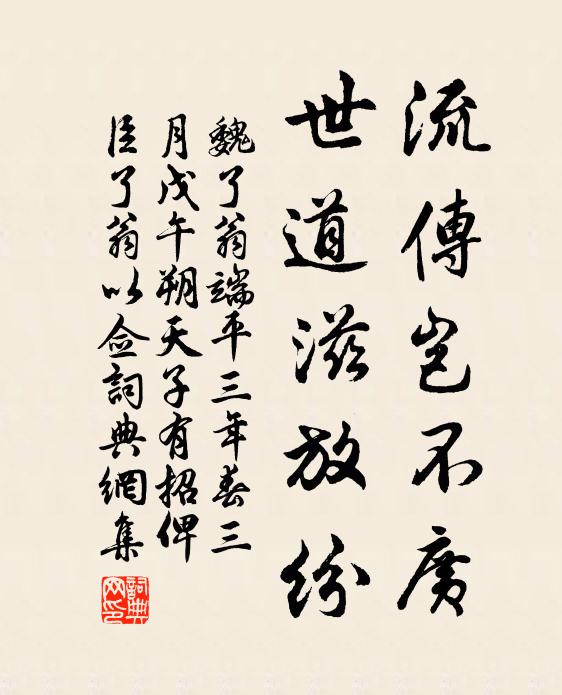 流傳岂不廣
世道滋放紛
魏了翁端平三年春三
月戊午朔天子有招俾
臣了翁以僉詞典網集
詞典网印